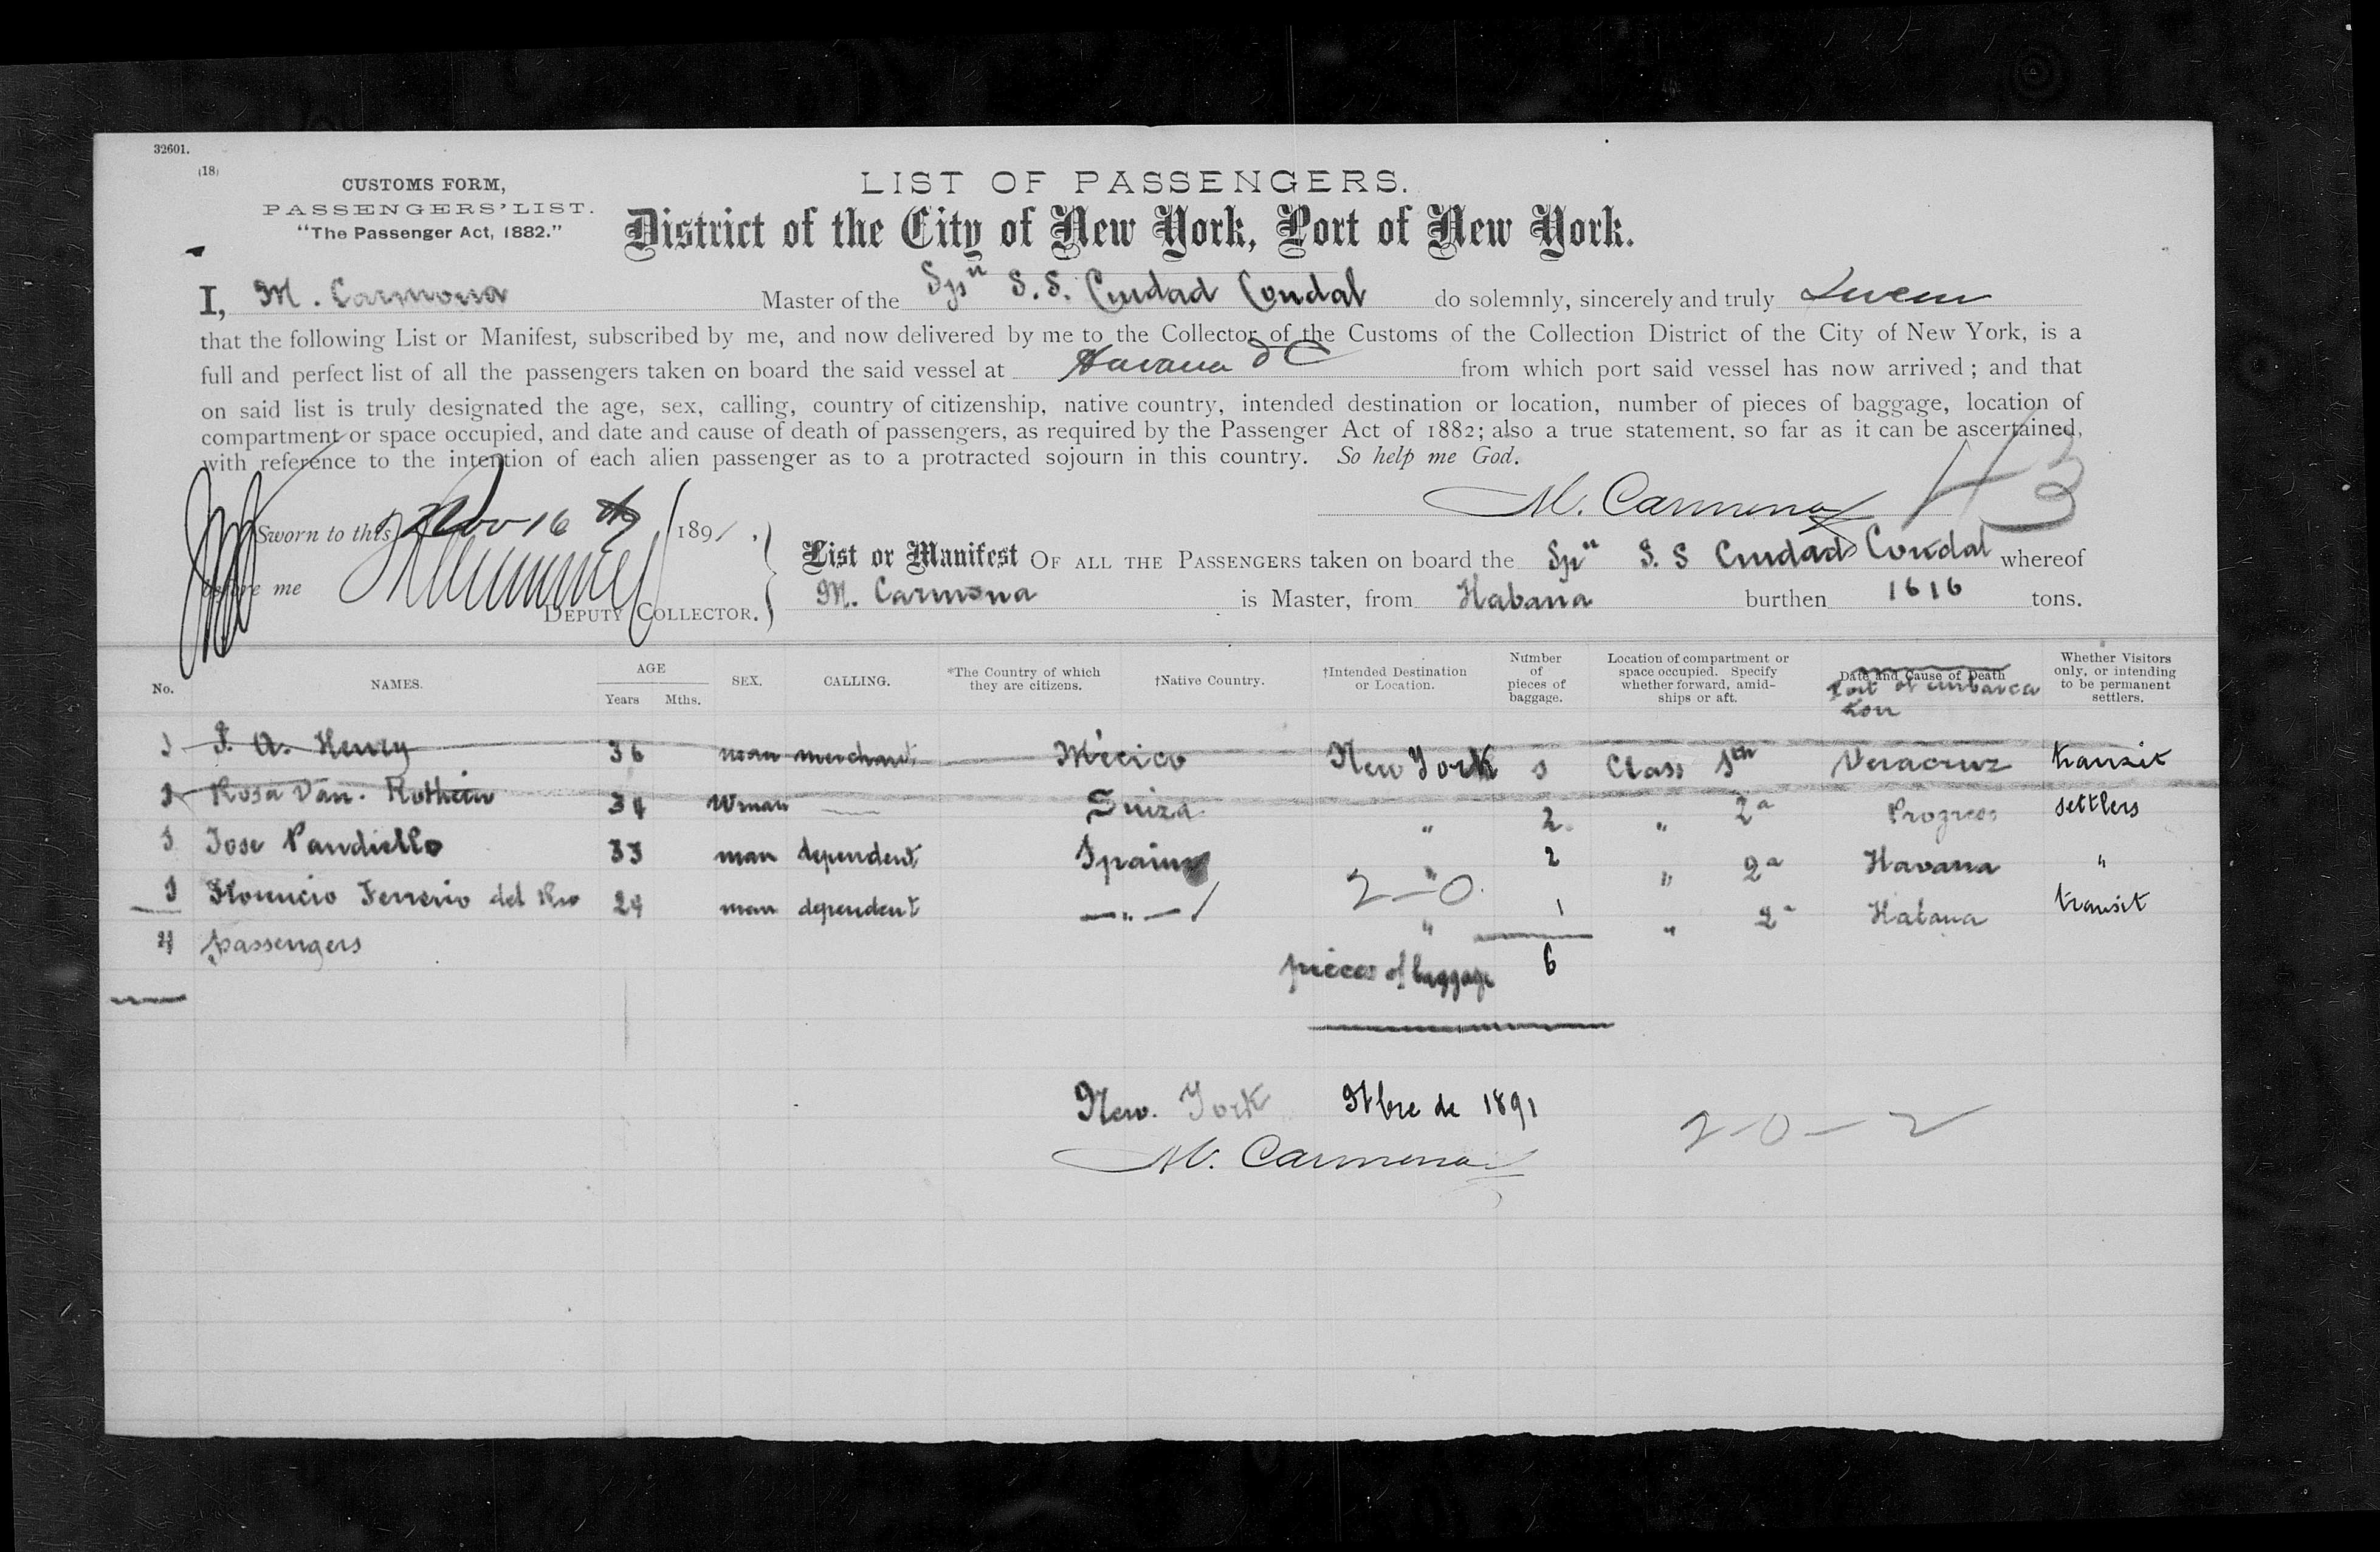 32601.
(18)
CUSTOMS FORM,
PASSENGERS' LIST.
"The Passenger Act, 1882."
LIST OF PASSENGERS.
District of the City of New York, Port of New York.
I, M. Carmona Master of the Spn S.S. Ciudad Condal do solemnly, sincerely and truly Swear
that the following List or Manifest, subscribed by me, and now delivered by me to the Collector of the Customs of the Collection District of the City of New York, is a
full and perfect list of all the passengers taken on board the said vessel at Havana from which port said vessel has now arrived; and that
on said list is truly designated the age, sex, calling, country of citizenship, native country, intended destination or location, number of pieces of baggage, location of
compartment or space occupied, and date and cause of death of passengers, as required by the Passenger Act of 1882; also a true statement, so far as it can be ascertained,
with reference to the intention of each alien passenger as to a protracted sojourn in this country. So help me God.
M. Carmona
Sworn to this Nov 16 th 1891.
before me
DEPUTY COLLECTOR.
List or Manifest OF ALL THE PASSENGERS taken on board the Spn S. S Ciudad Condal whereof
M. Carmona is Master, from Habana burthen 1616 tons.
No. NAMES. AGE Years Mths. SEX. CALLING. *The Country of which they are citizens. †Native Country. †Intended Destination or Location. Number of pieces of baggage. Location of compartment or space occupied. Specify whether forward, amidships or aft. Date and Cause of Death Port of embarcation Whether Visitors only, or intending to be permanent settlers.
1 A. Henry 36 man merchant México New York 1 Class 1th Veracruz transit
1 Rosa Van. 34 Wman Suiza " 2 " 2a Progreso settlers
1 Jose Pandiello 33 man dependent Spain " 2 " 2a Havana "
1 Florencio Ferrerio del Rio 24 man dependent " " 1 " 2a Habana transit
2-0
4 passengers
pieces of baggage 6
New York 9bre de 1891
2-0-2
M. Carmona